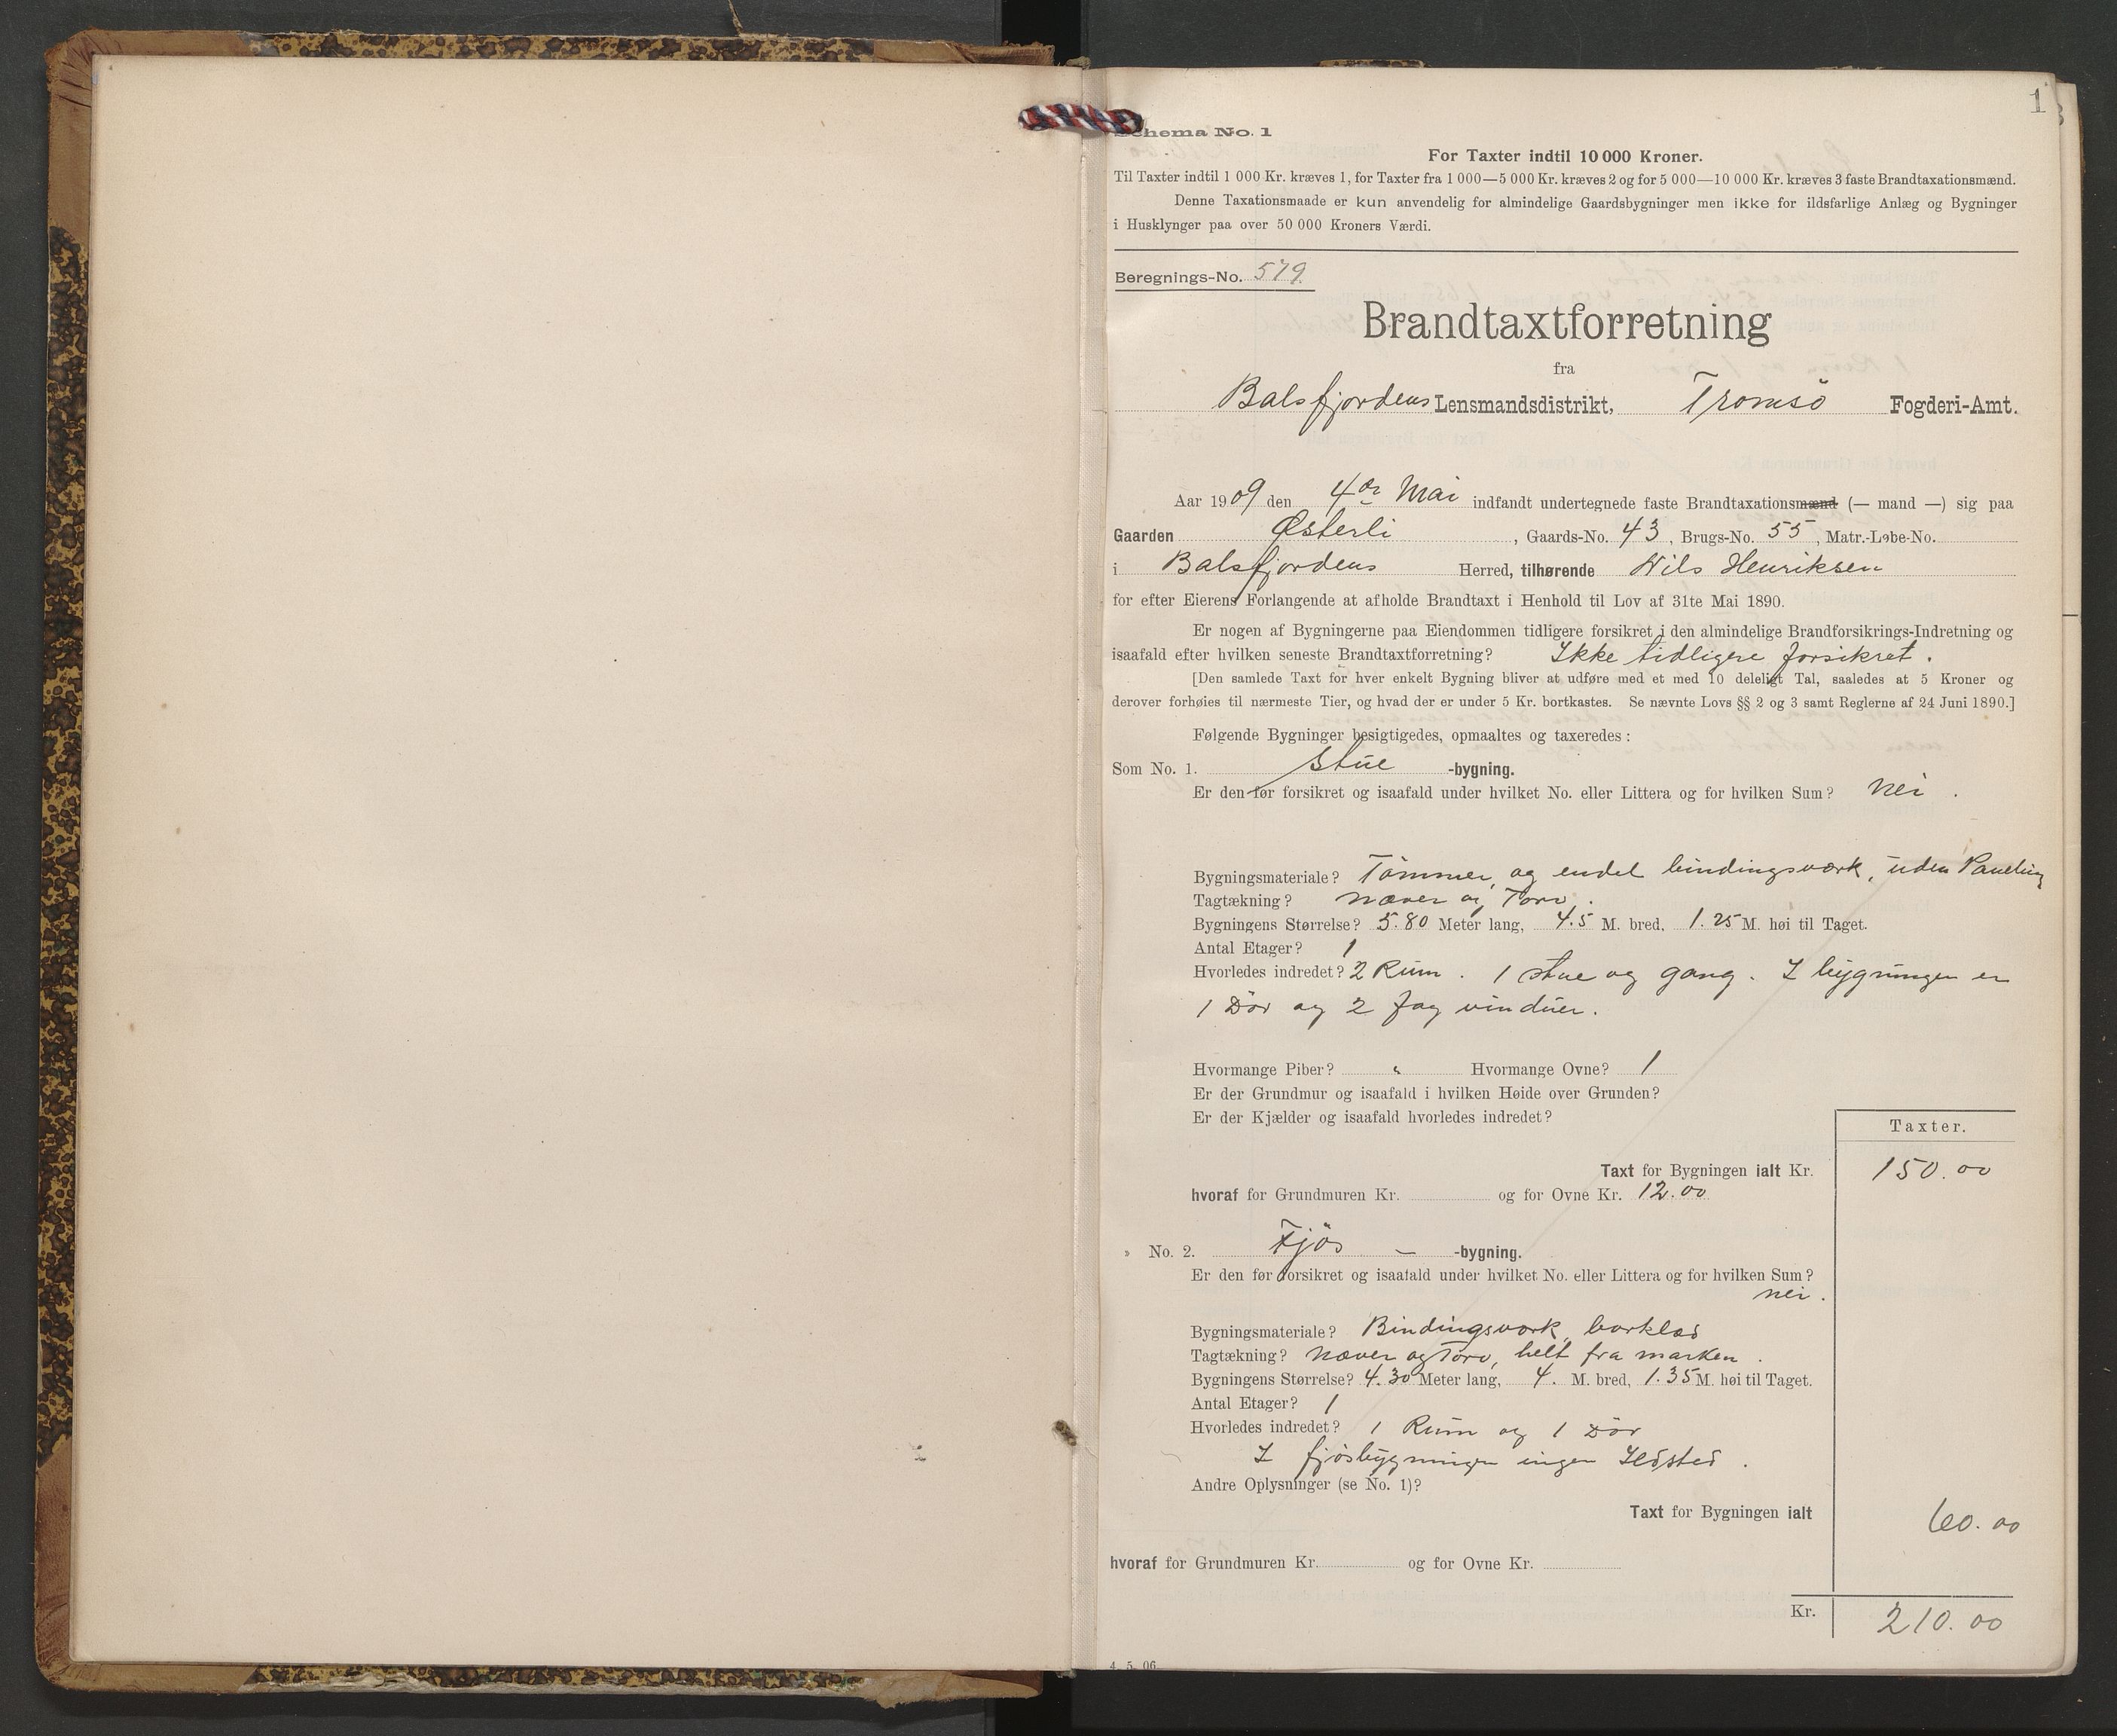 1
Schema No. 1
For Taxter indtil 10 000 Kroner.
Til Taxter indtil 1 000 Kr. kræves 1, for Taxter fra 1 000—5 000 Kr. kræves 2 og for 5 000—10 000 Kr. kræves 3 faste Brandtaxationsmænd.
Denne Taxationsmaade er kun anvendelig for almindelige Gaardsbygninger men ikke for ildsfarlige Anlæg og Bygninger
i Husklynger paa over 50 000 Kroners Værdi.
Beregnings-No. 579.
Brandtaxtforretning
fra
Balsfjordens Lensmandsdistrikt, Tromsö Fogderi-Amt.
Aar 1909 den 4de Mai indfandt undertegnede faste Brandtaxationsmænd (— mand —) sig paa
Gaarden Østerli, Gaards-No. 43, Brugs-No. 55, Matr.-Løbe-No.
i Balsfjordens Herred, tilhørende Nils Henriksen
for efter Eierens Forlangende at afholde Brandtaxt i Henhold til Lov af 31te Mai 1890.
Er nogen af Bygningerne paa Eiendommen tidligere forsikret i den almindelige Brandforsikrings-Indretning og
isaafald efter hvilken seneste Brandtaxtforretning? Ikke tidligere forsikret.
[Den samlede Taxt for hver enkelt Bygning bliver at udføre med et med 10 deleligt Tal, saaledes at 5 Kroner og
derover forhøies til nærmeste Tier, og hvad der er under 5 Kr. bortkastes. Se nævnte Lovs §§ 2 og 3 samt Reglerne af 24 Juni 1890.]
Følgende Bygninger besigtigedes, opmaaltes og taxeredes:
Som No. 1. Stue -bygning.
Er den før forsikret og isaafald under hvilket No. eller Littera og for hvilken Sum? Nei.
Bygningsmateriale? Tömmer, og endel bindingsværk, uden Paneling
Tagtækning? Næver og Torv.
Bygningens Størrelse? 5.80 Meter lang, 4.5 M. bred, 1.25 M. høi til Taget.
Antal Etager? 1
Hvorledes indredet? 2 Rum. 1 stue og gang. I bygningen er
1 Dör og 2 fag vinduer.
Hvormange Piber? " Hvormange Ovne? 1
Er der Grundmur og isaafald i hvilken Høide over Grunden?
Er der Kjælder og isaafald hvorledes indredet?
Taxter.
Taxt for Bygningen ialt Kr. 150.00
hvoraf for Grundmuren Kr. og for Ovne Kr. 12.00
» No. 2. Fjös — -bygning.
Er den før forsikret og isaafald under hvilket No. eller Littera og for hvilken Sum?
nei.
Bygningsmateriale? Bindingsværk, bordklæd
Tagtækning? Næver og Torv, helt fra marken.
Bygningens Størrelse? 4.30 Meter lang, 4. M. bred, 1.35 M. høi til Taget.
Antal Etager? 1
Hvorledes indredet? 1 Rum og 1 Dör
I fjösbygningen ingen Ildsted.
Andre Oplysninger (se No. 1)?
Taxt for Bygningen ialt 60.00
hvoraf for Grundmuren Kr. og for Ovne Kr.
Kr. 210.00
4. 5. 06.